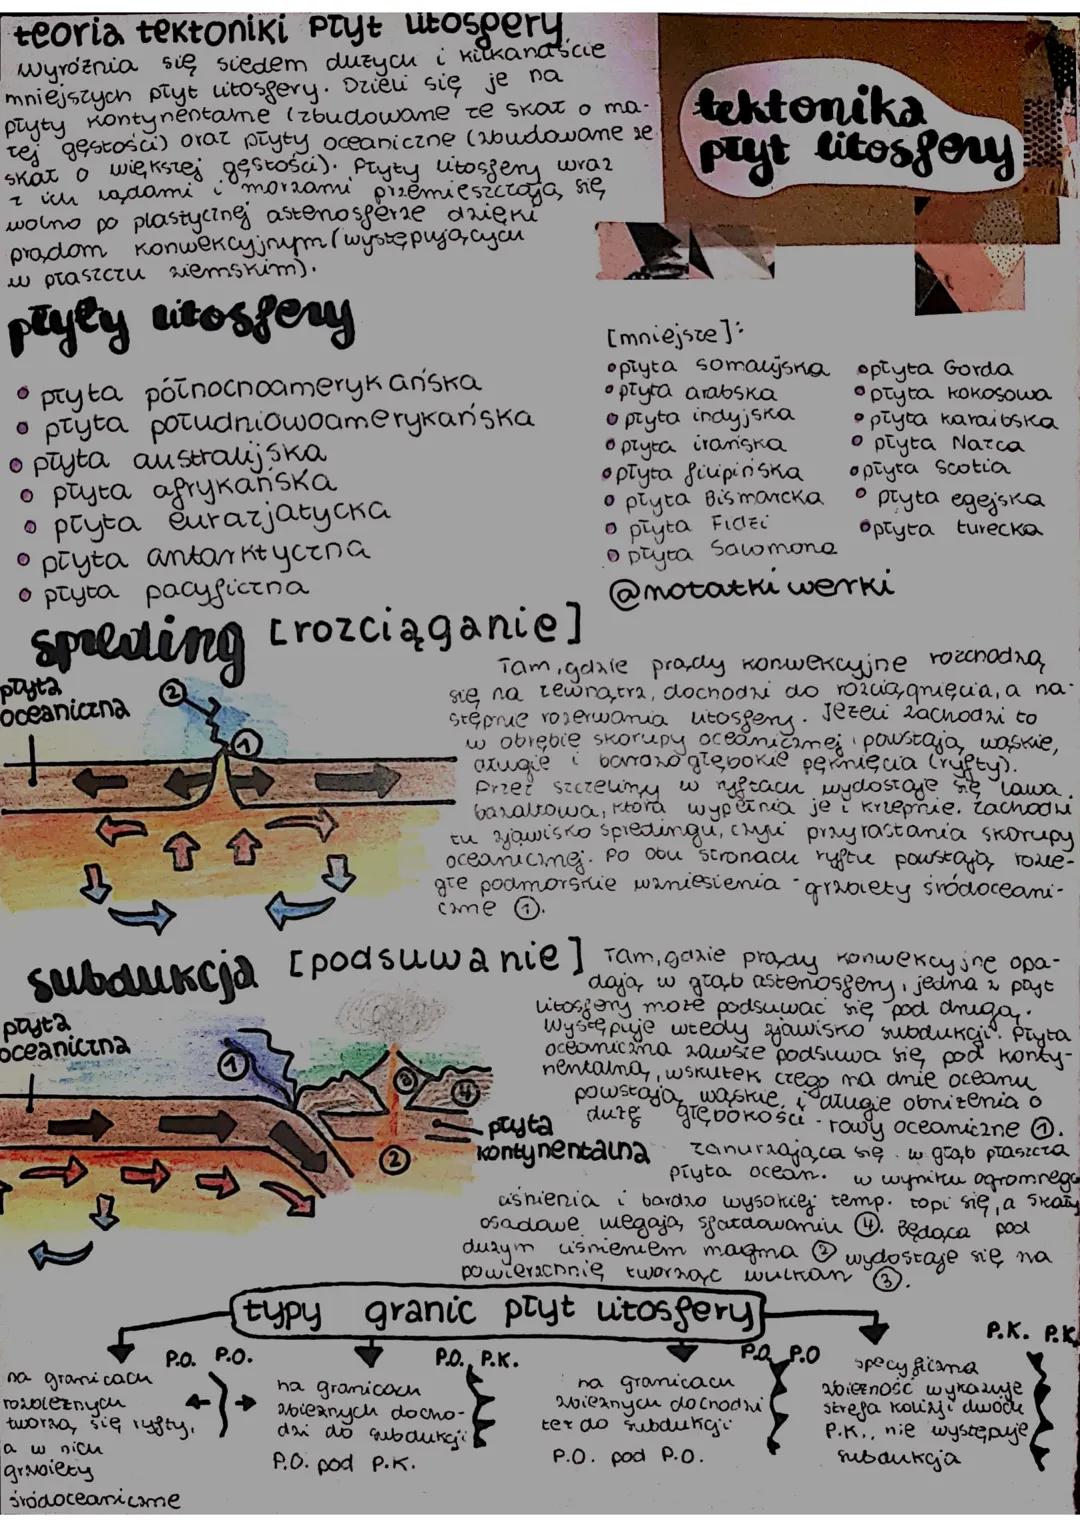 teoria tektoniki płyt litosfery
wyróżnia się siedem dużych i kilkanaście
mniejszych płyt litosfery. Dzieli się je na
płyty kontynentalne (zbudowane ze skał o ma-
łej gęstości) oraz płyty oceaniczne (zbudowane ze
skał o większej gęstości). Płyty litosfery wraz
z ich lądami i morzami przemieszczają się
wolno po plastycznej astenosferze dzięki
prądom konwekcyjnym (występujących
w płaszczu ziemskim).
tektonika
płyt litosfery
płyty litosfery
płyta północnoamerykańska
płyta południowoamerykańska
płyta australijska
płyta afrykańska
płyta eurazjatycka
płyta antarktyczna
płyta pacyficzna
[mniejsze]:
płyta somalijska
płyta arabska
płyta indyjska
płyta irańska
płyta filipińska
płyta Bismarcka
płyta Fidżi
płyta Salomona
płyta Gorda
płyta kokosowa
płyta karaibska
płyta Nazca
płyta Scotia
płyta egejska
płyta turecka
@notatki werki
spreding [rozciąganie]
płyta
oceaniczna
2
1
Tam, gdzie prądy konwekcyjne rozchodzą
się na zewnątrz, dochodzi do rozciągnięcia, a na-
stępnie rozerwania litosfery. Jeżeli zachodzi to
w obrębie skorupy oceanicznej, powstają wąskie,
długie i bardzo głębokie pęknięcia (ryfty).
Przez szczeliny w ryftach wydostaje się lawa
bazaltowa, która wypełnia je i krzepnie. Zachodzi
tu zjawisko spredingu, czyli przyrastania skorupy
oceanicznej. Po obu stronach ryftu powstają rozle-
głe podmorskie wzniesienia - grzbiety śródoceani-
czne ①.
subdukcja [podsuwanie]
płyta
oceaniczna
1
3
4
2
płyta
kontynentalna
Tam, gdzie prądy konwekcyjne opa-
dają w głąb astenosfery, jedna z płyt
litosfery może podsuwać się pod drugą.
Występuje wtedy zjawisko subdukcji. Płyta
oceaniczna zawsze podsuwa się pod konty-
nentalną, wskutek czego na dnie oceanu
powstają wąskie i długie obniżenia o
dużę głębokości - rowy oceaniczne ①.
zanurzająca się w głąb płaszcza
płyta ocean. w wyniku ogromnego
ciśnienia i bardzo wysokiej temp. topi się, a skały
osadowe ulegają sfałdowaniu ④. Będąca pod
dużym ciśnieniem magma ② wydostaje się na
powierzchnię tworząc wulkan ③.
typy granic płyt litosfery
P.O. P.O.
na granicach
rozbieżnych
tworzą się ryfty,
a w nich
grzbiety
śródoceaniczne
P.O. P.K.
na granicach
zbieżnych docho-
dzi do subdukcji
P.O. pod P.K.
P.O. P.O
na granicach
zbieżnych dochodzi
też do subdukcji
P.O. pod P.O.
P.K. P.K
specyficzna
zbieżność wykazuje
strefa kolizji dwóch
P.K., nie występuje
subdukcja